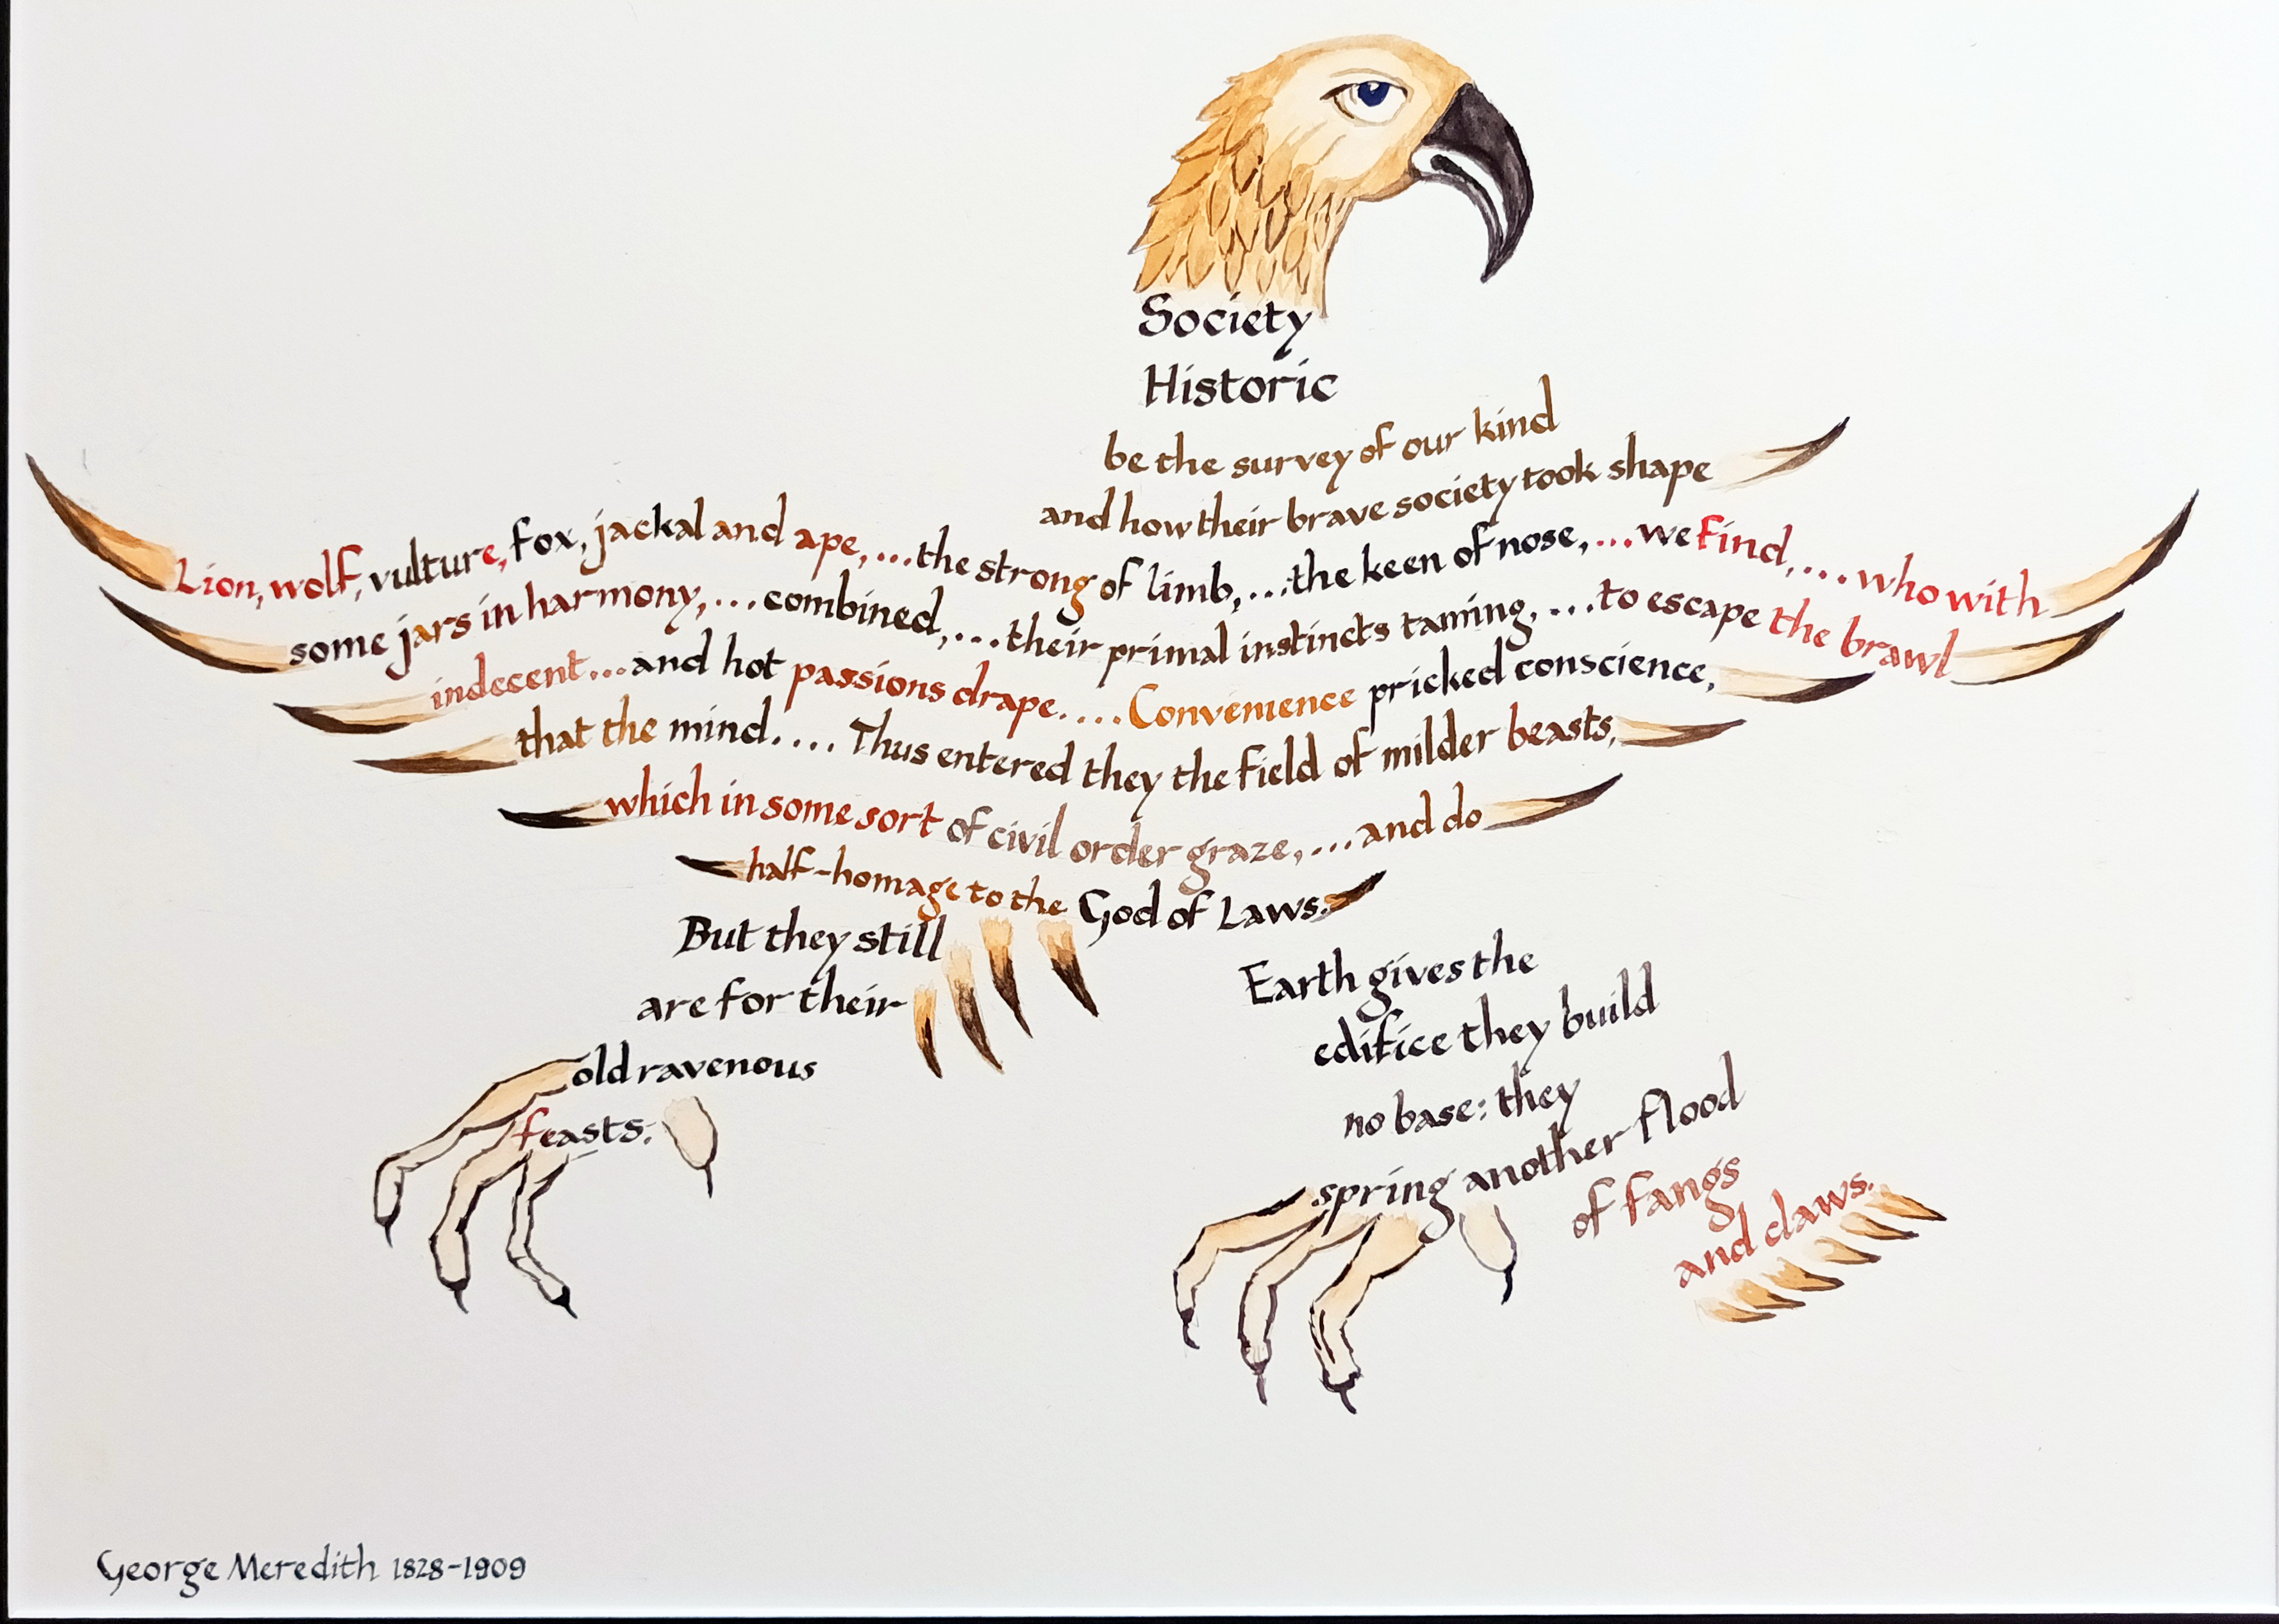 Society
Historic
be the survey of our kind
and how their brave society took shape
Lion, wolf, vulture, fox, jackal and ape,...the strong of limb,...the keen of nose,...we find,...who with
some jars in harmony,...combined,...their primal instincts taming,...to escape the brawl
indecent...and hot passions drape....Convenience pricked conscience,
that the mind.... Thus entered they the field of milder beasts,
which in some sort of civil order graze,...and do
half-homage to the God of Laws.
But they still
are for their
old ravenous
feasts.
Earth gives the
edifice they build
no base: they
spring another flood
of fangs
and claws.
George Meredith 1828-1909